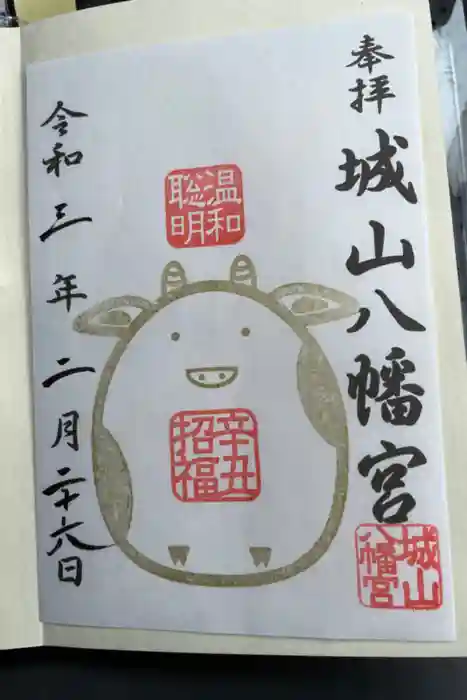 奉拝
城山八幡宮
城山八幡宮
温和聡明
辛丑招福
令和三年二月二十六日